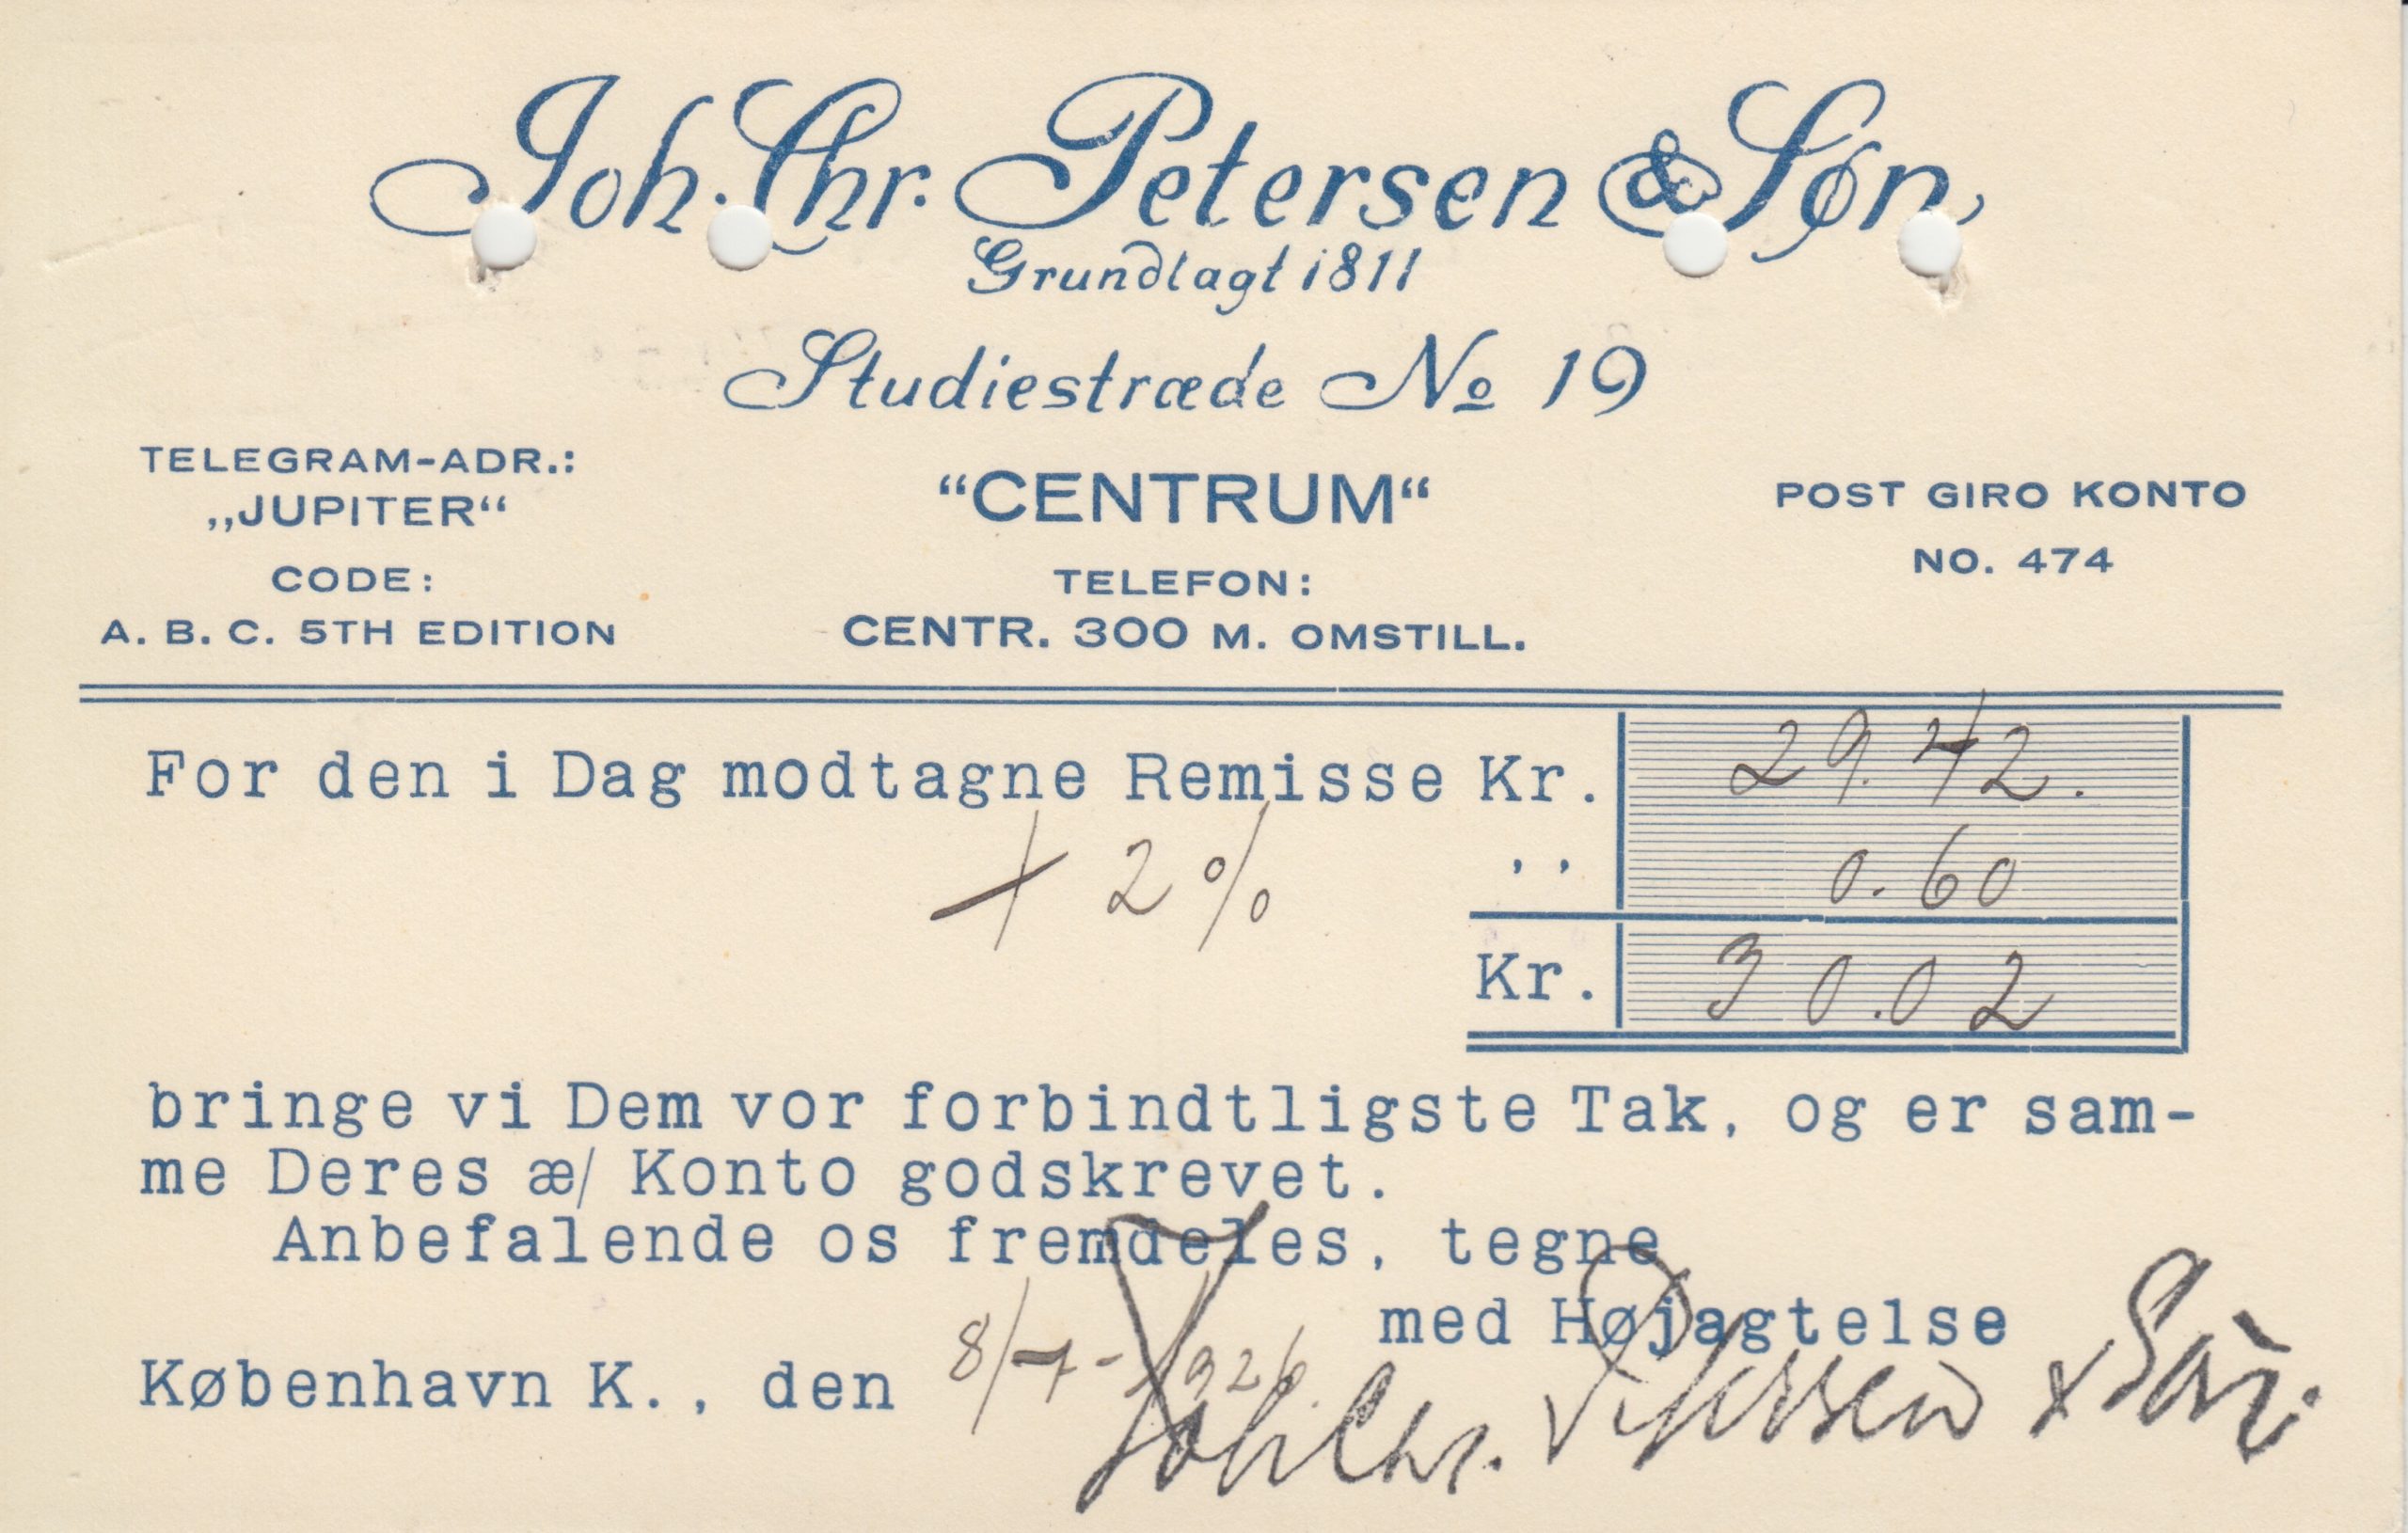 Joh. Chr. Petersen & Søn,
Grundlagt 1811
Studiestræde No 19
TELEGRAM-ADR.:
„JUPITER“
CODE:
A. B. C. 5TH EDITION
“CENTRUM“
TELEFON:
CENTR. 300 M. OMSTILL.
POST GIRO KONTO
NO. 474
For den i Dag modtagne Remisse Kr. 29.42.
+ 2 % ,, 0.60
Kr. 30.02
bringe vi Dem vor forbindtligste Tak, og er sam-
me Deres æ/ Konto godskrevet.
Anbefalende os fremdeles, tegne
med Højagtelse
København K., den 8/7-1926.
Joh Chr. Petersen & Søn.